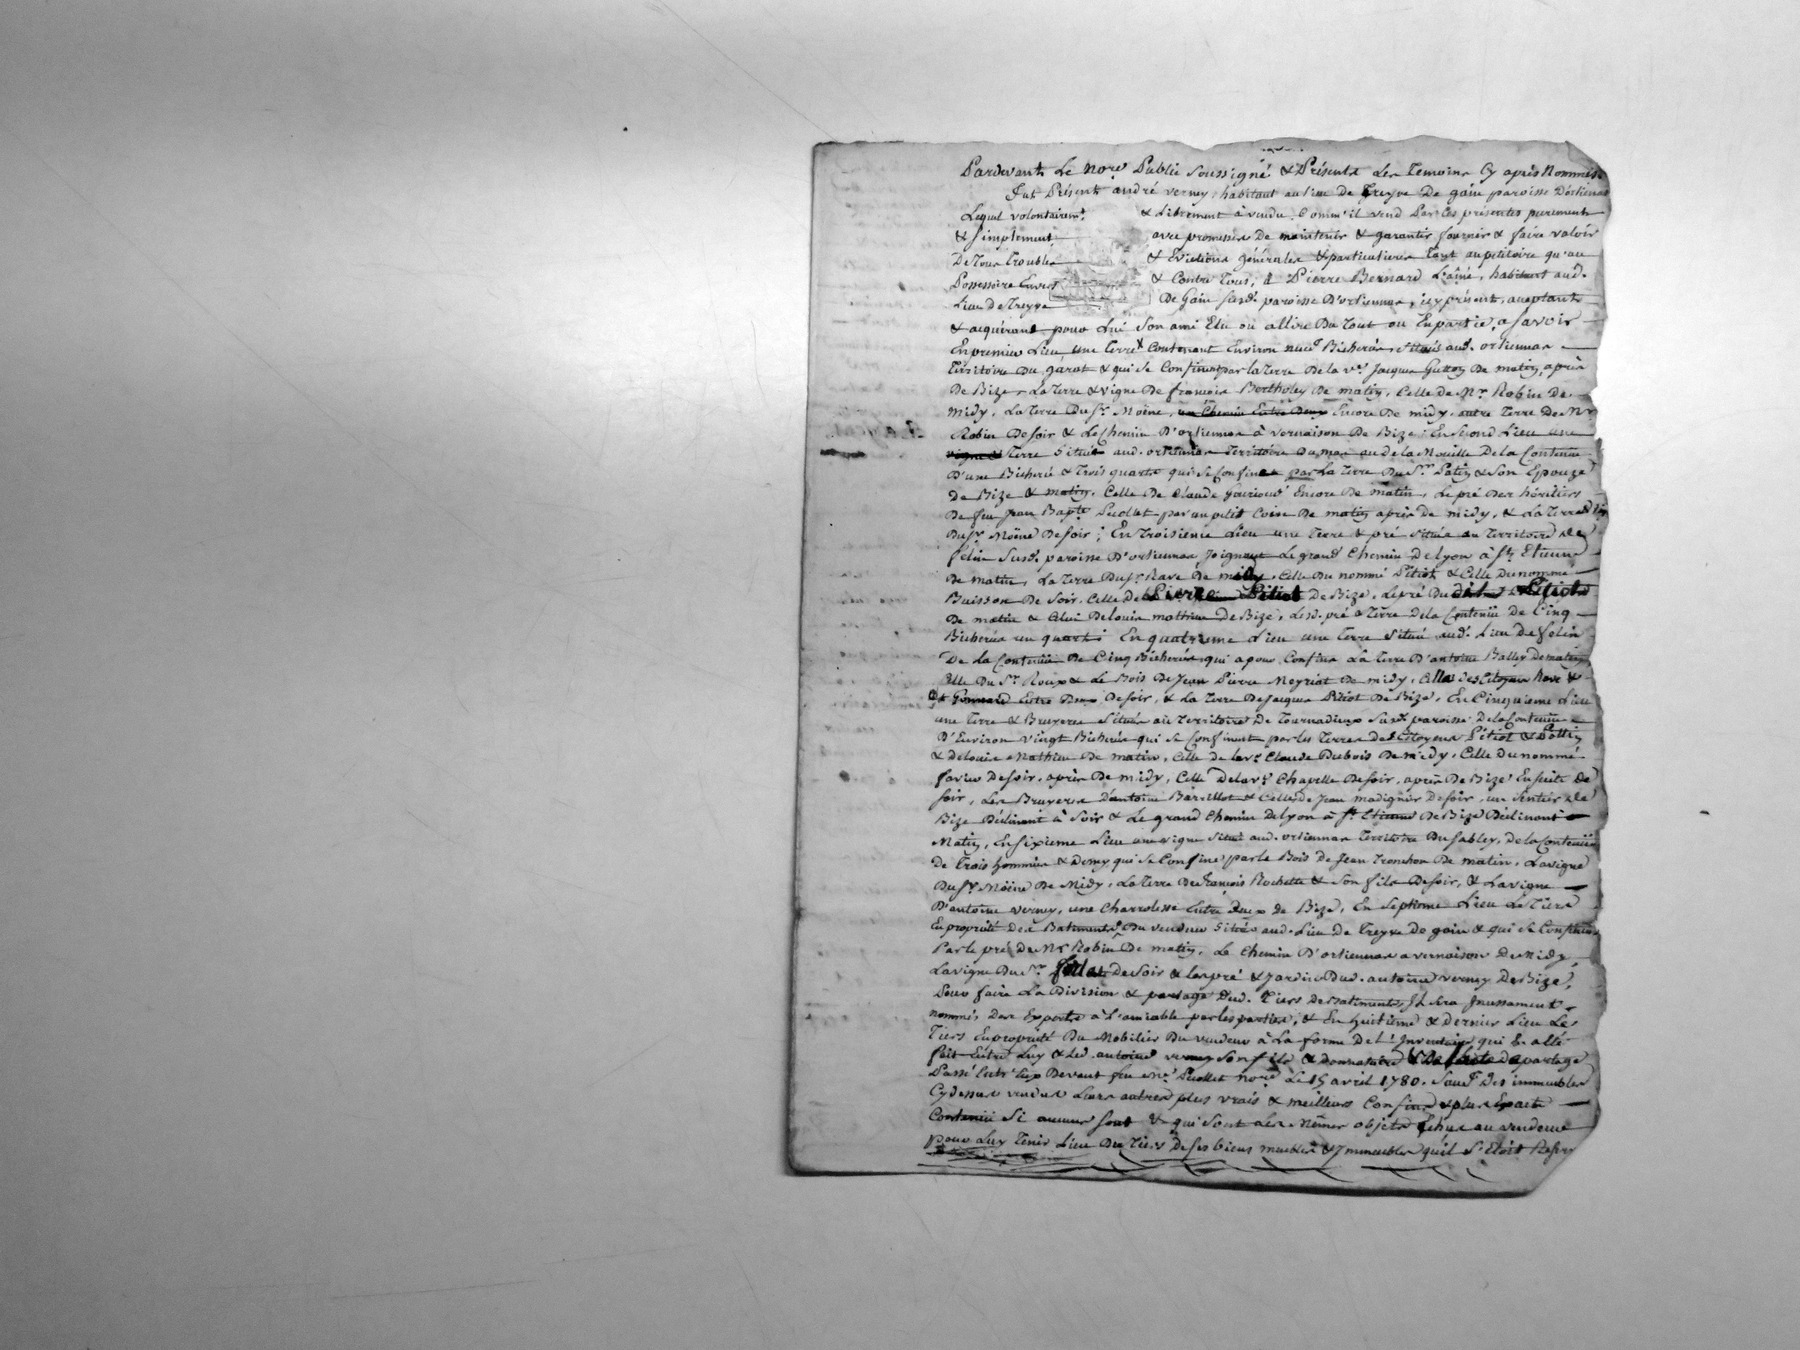 Pardevant Le Nore Public Soussigné & Présents Les Temoins Cy après Nommés
fut Présent andré verney habitant au lieu De Treyve De gain paroisse D'orliénas
Lequel volontairemt. & Librement à vendu Comme il vend Par les présentes purement
& simplement avec promesse De maintenir & garantir fournir & faire valoir
De Tous Troubles & Evictions générales & particulieres Tant au petitoire qu'au
Possessoire Envers & Contre Tous, à Pierre Bernard L'ainé, habitant aud.
Lieu de Treyve De Gain susd. paroisse D'orliennas, icy présent, acceptant
& acquérant pour Lui Son ami Elu ou a Elire Du Tout ou En partie, a savoir
En premier Lieu une Terre Contenant Environ neuf Bicherées, située aud. orliennas
Territoire Du garot & qui se Confine par la Terre De la ve. Jacques Gutton De matin, après
De Bize, La Terre & vigne De françois Bertholey De matin, Celle de Mr. Robin De
midy, La Terre Du Sr. Moëne, un Chemin Entre Deux Encore De midy, autre Terre De Mr
Robin De soir & Le Chemin D'orliennas à vernaison De Bize; En Second Lieu une
vigne & Terre Située aud. orliennas Territoire Du mas au de la Mouille De la Contenue
D'une Bicherée & Trois quarts qui se Confine par La Terre Du Sr. Patin & Son Epouze
de Bize & matin, Celle De Claude Encore De matin, Le pré Des héritiers
De feu Jean Bapte. par un petit Coin De matin après de midy, & La Terre
Du Sr. Moëne De soir; En Troisieme Lieu une Terre & pré située au Territoire de
felin Susd. paroisse D'orliennas, Joignant Le grand Chemin de Lyon à St. Etienne
De matin, La Terre Du Sr. Rave De midy, Celle Du nommé Pitiot & Celle Du nommé
Buisson De Soir, Celle de Pierre Pitiot De Bize, Le pré Du dit Pitiot
De matin & Celui De Louis mathieu de Bize, Lesd. pré & Terre De la Contenue De Cinq
Bicherées un quart; En quatrieme Lieu une Terre située aud. Lieu De felin
De la Contenue De Cinq Bicherées, qui a pour Confins La Terre D'antoine Bally De matin
Celle Du Sr. Roux & Le Bois De Jean Pierre Meyriat De midy, Celles des Citoyens Rave &
Gonnard Entre Deux De soir, & La Terre De Jacques Pitiot De Bize, En Cinquieme Lieu
une Terre & Bruyeres Située au Territoire de Tournadieux Susd. paroisse De la Contenue
D'Environ vingt Bicherées qui se Confinent par les Terres des Citoyens Pitiot &
& de Louis Mathieu De matin, Celle de la ve. Claude Dubois De midy, Celle Du nommé
favier De soir, après De midy, Celle De la ve. Chapelle De soir, après De Bize Ensuite De
soir, Les Bruyeres D'antoine Barillot & Celles De Jean madignier De soir, un Sentier de
Bize Déclinant à Soir & Le grand Chemin de Lyon à St. Etienne De Bize Déclinant
Matin, En sixieme Lieu une vigne Située aud. orliennas Territoire Du sabley, de la Contenue
de Trois hommées & Demy qui se Confine par le Bois de Jean Tronchon De matin, La vigne
Du Sr. Moëne De Midy, La Terre De françois Rochette & Son fils De soir, & La vigne
D'antoine verney, une Charrolesse Entre deux de Bize, En Septieme Lieu Le Tiers
En propriété Des Batiments Du vendeur Situés aud. Lieu De Treyve De gain & qui se Confinent
Par le pré de Mr Robin De matin, Le Chemin D'orliennas a vernaison De Midy,
La vigne Du Sr. de Soir & Les pré & Jardin Dud. antoine verney De Bize,
Pour faire La Division & partage Dud. Tiers De Batiments, Il sera Incessament
nommé Des Experts à L'amiable par les parties, & En huitieme & Dernier Lieu Le
Tiers En propriété Du Mobilier Du vendeur à La forme De L'Inventaire qui En a été
fait Entre Luy & Led. antoine verney Son fils & Donnataire De partage
Passé Entr'Eux Devant feu Me. nore. Le 15 avril 1780. Sauf Des immeubles
Cydessus vendus Leurs autres plus vrais & meilleurs Confins & plus Exacte
Contenue Si aucuns sont & qui Sont Les mêmes objets Echus au vendeur
Pour Luy Tenir Lieu Du Tiers De ses biens meubles & Immeubles qu'il S'étoit